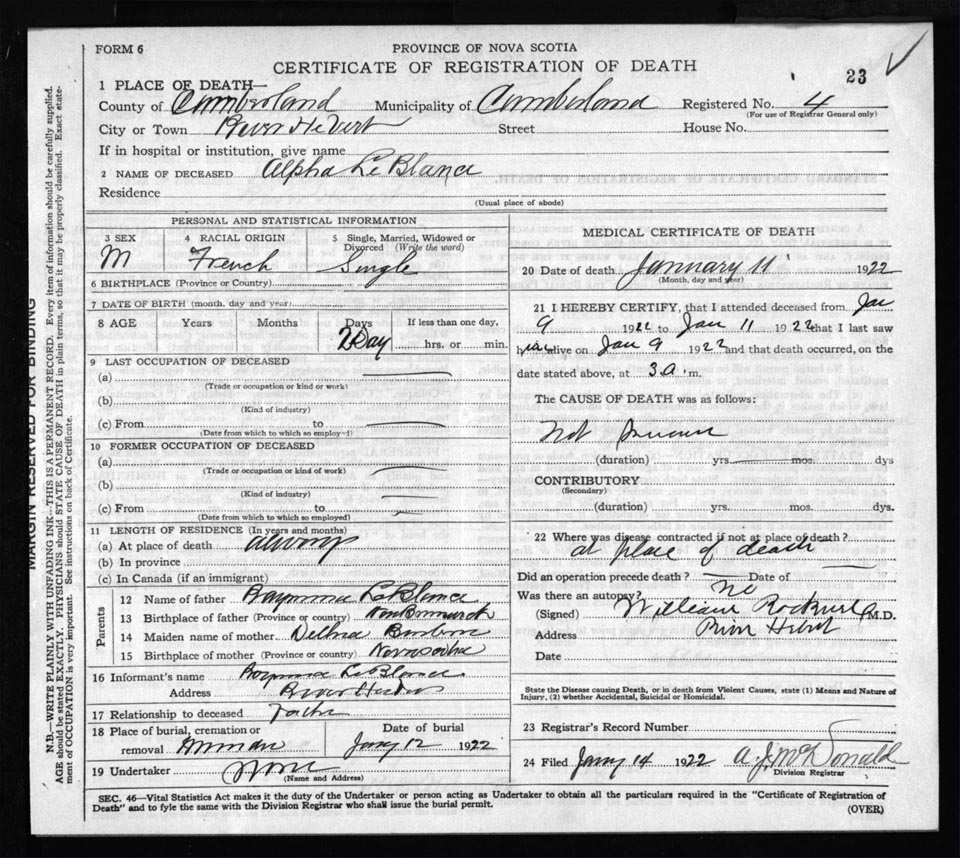 FORM 6
PROVINCE OF NOVA SCOTIA
CERTIFICATE OF REGISTRATION OF DEATH
23
1 PLACE OF DEATH—
County of Cumberland Municipality of Cumberland Registered No. 4
(For use of Registrar General only)
City or Town River Hebert Street House No.
If in hospital or institution, give name
2 NAME OF DECEASED Alpha Le Blanc
Residence
(Usual place of abode)
PERSONAL AND STATISTICAL INFORMATION
3 SEX 4 RACIAL ORIGIN 5 Single, Married, Widowed or Divorced (Write the word)
M French Single
6 BIRTHPLACE (Province or Country)
7 DATE OF BIRTH (month, day and year)
8 AGE Years Months Days If less than one day,
2 Day hrs. or min.
9 LAST OCCUPATION OF DECEASED
(a)
(Trade or occupation or kind or work)
(b)
(Kind of industry)
(c) From to
(Date from which to which so employ-f)
10 FORMER OCCUPATION OF DECEASED
(a)
(Trade or occupation or kind of work)
(b)
(Kind of industry)
(c) From to
(Date from which to which so employed)
11 LENGTH OF RESIDENCE (In years and months)
(a) At place of death always
(b) In province
(c) In Canada (if an immigrant)
Parents
12 Name of father Raymond Le Blanc
13 Birthplace of father (Province or country) New Brunswick
14 Maiden name of mother
15 Birthplace of mother (Province or country) Nova Scotia
16 Informant's name Raymond Le Blanc
Address River Hebert
17 Relationship to deceased Father
18 Place of burial, cremation or Date of burial
removal Jany 12 1922
19 Undertaker None
(Name and Address)
MEDICAL CERTIFICATE OF DEATH
20 Date of death January 11 1922
(Month, day and year)
21 I HEREBY CERTIFY, that I attended deceased from Jan
9 1922 to Jan 11 1922 that I last saw
him alive on Jan 9 1922 and that death occurred, on the
date stated above, at 3 a. m.
The CAUSE OF DEATH was as follows:
Not known
(duration) yrs. mos. dys
CONTRIBUTORY
(Secondary)
(duration) yrs. mos. dys.
22 Where was disease contracted if not at place of death?
at place of death
Did an operation precede death? Date of
Was there an autopsy? No
(Signed) William Rockwell M.D.
Address River Hebert
Date
State the Disease causing Death, or in death from Violent Causes, state (1) Means and Nature of
Injury, (2) whether Accidental, Suicidal or Homicidal.
23 Registrar's Record Number
24 Filed Jany 14 1922 A. J. McDonald
Division Registrar
SEC. 46—Vital Statistics Act makes it the duty of the Undertaker or person acting as Undertaker to obtain all the particulars required in the "Certificate of Registration of
Death" and to fyle the same with the Division Registrar who shall issue the burial permit.
(OVER)
MARGIN RESERVED FOR BINDING
N.B.—WRITE PLAINLY WITH UNFADING INK—THIS IS A PERMANENT RECORD. Every item of information should be carefully supplied.
AGE should be stated EXACTLY. PHYSICIANS should STATE CAUSE OF DEATH in plain terms, so that it may be properly classified. Exact state-
ment of OCCUPATION is very important. See instructions on back of Certificate.